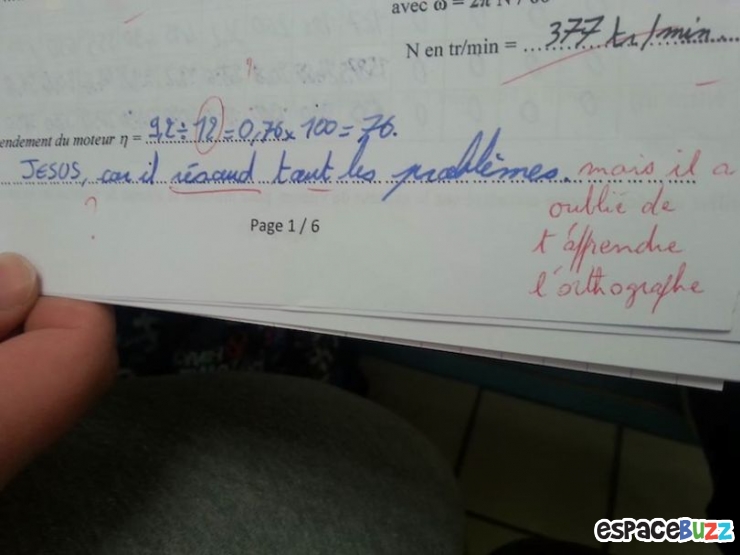 avec ω = 2π N / 60
N en tr/min = ...377 tr/min...
?
endement du moteur η = 9,2 ÷ 12 = 0,76 x 100 = 76.
JESUS, car il résaud taut les problèmes. mais il a
oublié de
?
Page 1 / 6
t'apprendre
l'orthographe
ESPACEBUZZ